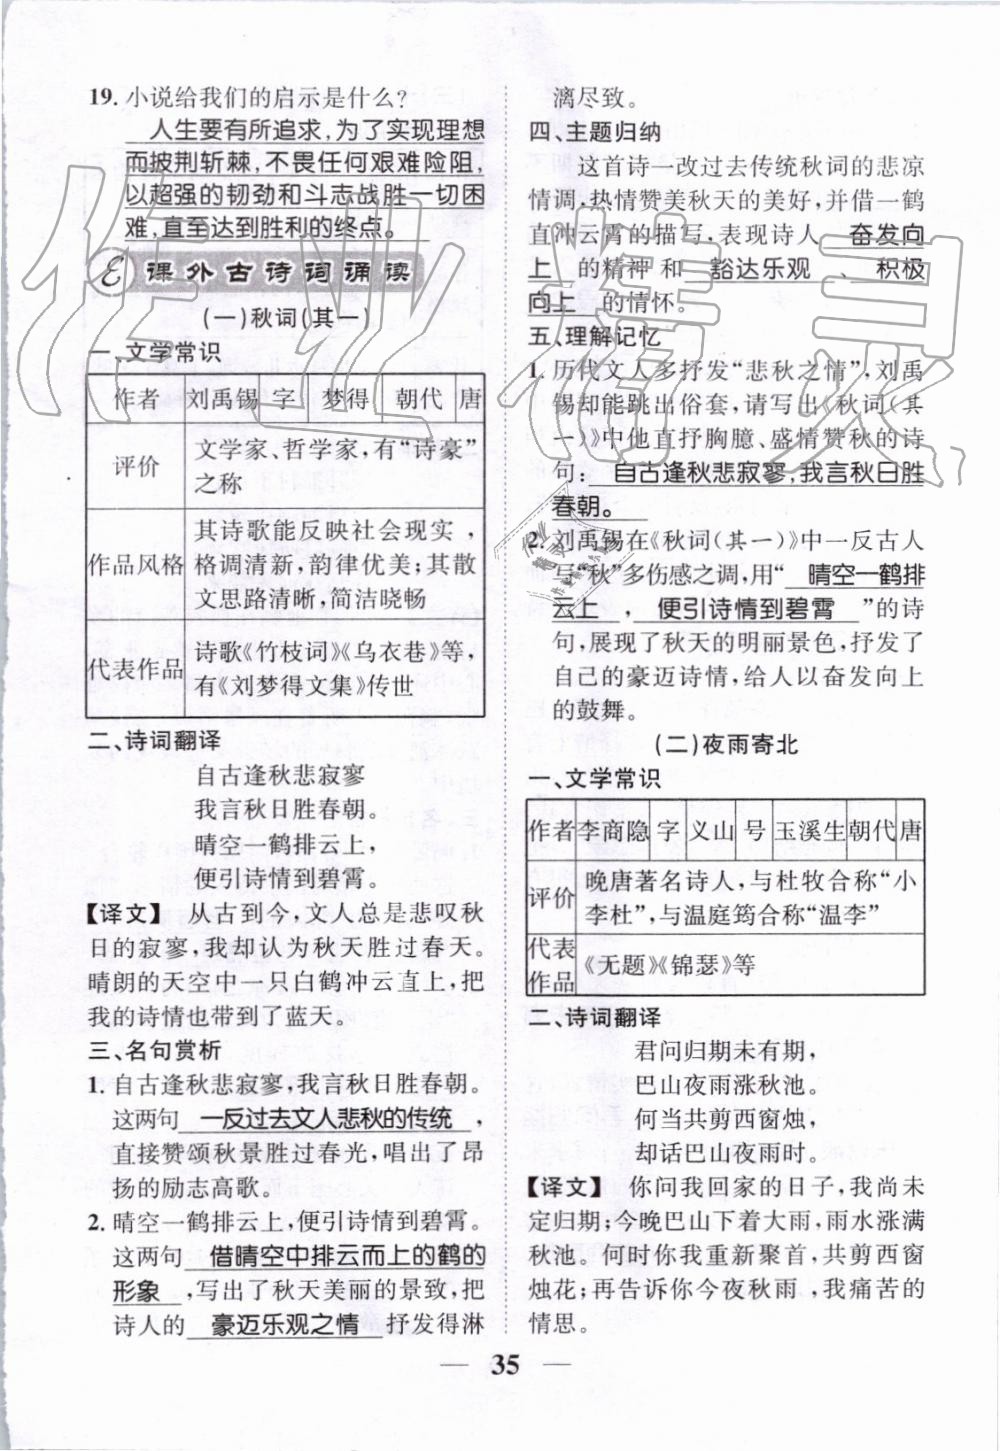 19. 小说给我们的启示是什么?
人生要有所追求,为了实现理想
而披荆斩棘,不畏任何艰难险阻,
以超强的韧劲和斗志战胜一切困
难,直至达到胜利的终点。
E 课外古诗词诵读
(一)秋词(其一)
一、文学常识
作者 刘禹锡 字 梦得 朝代 唐
评价 文学家、哲学家,有“诗豪”
之称
作品风格 其诗歌能反映社会现实,
格调清新,韵律优美;其散
文思路清晰,简洁晓畅
代表作品 诗歌《竹枝词》《乌衣巷》等,
有《刘梦得文集》传世
二、诗词翻译
自古逢秋悲寂寥
我言秋日胜春朝。
晴空一鹤排云上,
便引诗情到碧霄。
【译文】 从古到今,文人总是悲叹秋
日的寂寥,我却认为秋天胜过春天。
晴朗的天空中一只白鹤冲云直上,把
我的诗情也带到了蓝天。
三、名句赏析
1. 自古逢秋悲寂寥,我言秋日胜春朝。
这两句 一反过去文人悲秋的传统 ,
直接赞颂秋景胜过春光,唱出了昂
扬的励志高歌。
2. 晴空一鹤排云上,便引诗情到碧霄。
这两句 借晴空中排云而上的鹤的
形象 ,写出了秋天美丽的景致,把
诗人的 豪迈乐观之情 抒发得淋
漓尽致。
四、主题归纳
这首诗一改过去传统秋词的悲凉
情调,热情赞美秋天的美好,并借一鹤
直冲云霄的描写,表现诗人 奋发向
上 的精神和 豁达乐观 、 积极
向上 的情怀。
五、理解记忆
1. 历代文人多抒发“悲秋之情”,刘禹
锡却能跳出俗套,请写出《秋词(其
一)》中他直抒胸臆、盛情赞秋的诗
句: 自古逢秋悲寂寥,我言秋日胜
春朝。
2. 刘禹锡在《秋词(其一)》中一反古人
写“秋”多伤感之调,用“ 晴空一鹤排
云上 , 便引诗情到碧霄 ”的诗
句,展现了秋天的明丽景色,抒发了
自己的豪迈诗情,给人以奋发向上
的鼓舞。
(二)夜雨寄北
一、文学常识
作者 李商隐 字 义山 号 玉溪生 朝代 唐
评价 晚唐著名诗人,与杜牧合称“小
李杜”,与温庭筠合称“温李”
代表
作品 《无题》《锦瑟》等
二、诗词翻译
君问归期未有期,
巴山夜雨涨秋池。
何当共剪西窗烛,
却话巴山夜雨时。
【译文】 你问我回家的日子,我尚未
定归期;今晚巴山下着大雨,雨水涨满
秋池。何时你我重新聚首,共剪西窗
烛花;再告诉你今夜秋雨,我痛苦的
情思。
— 35 —
作业精灵